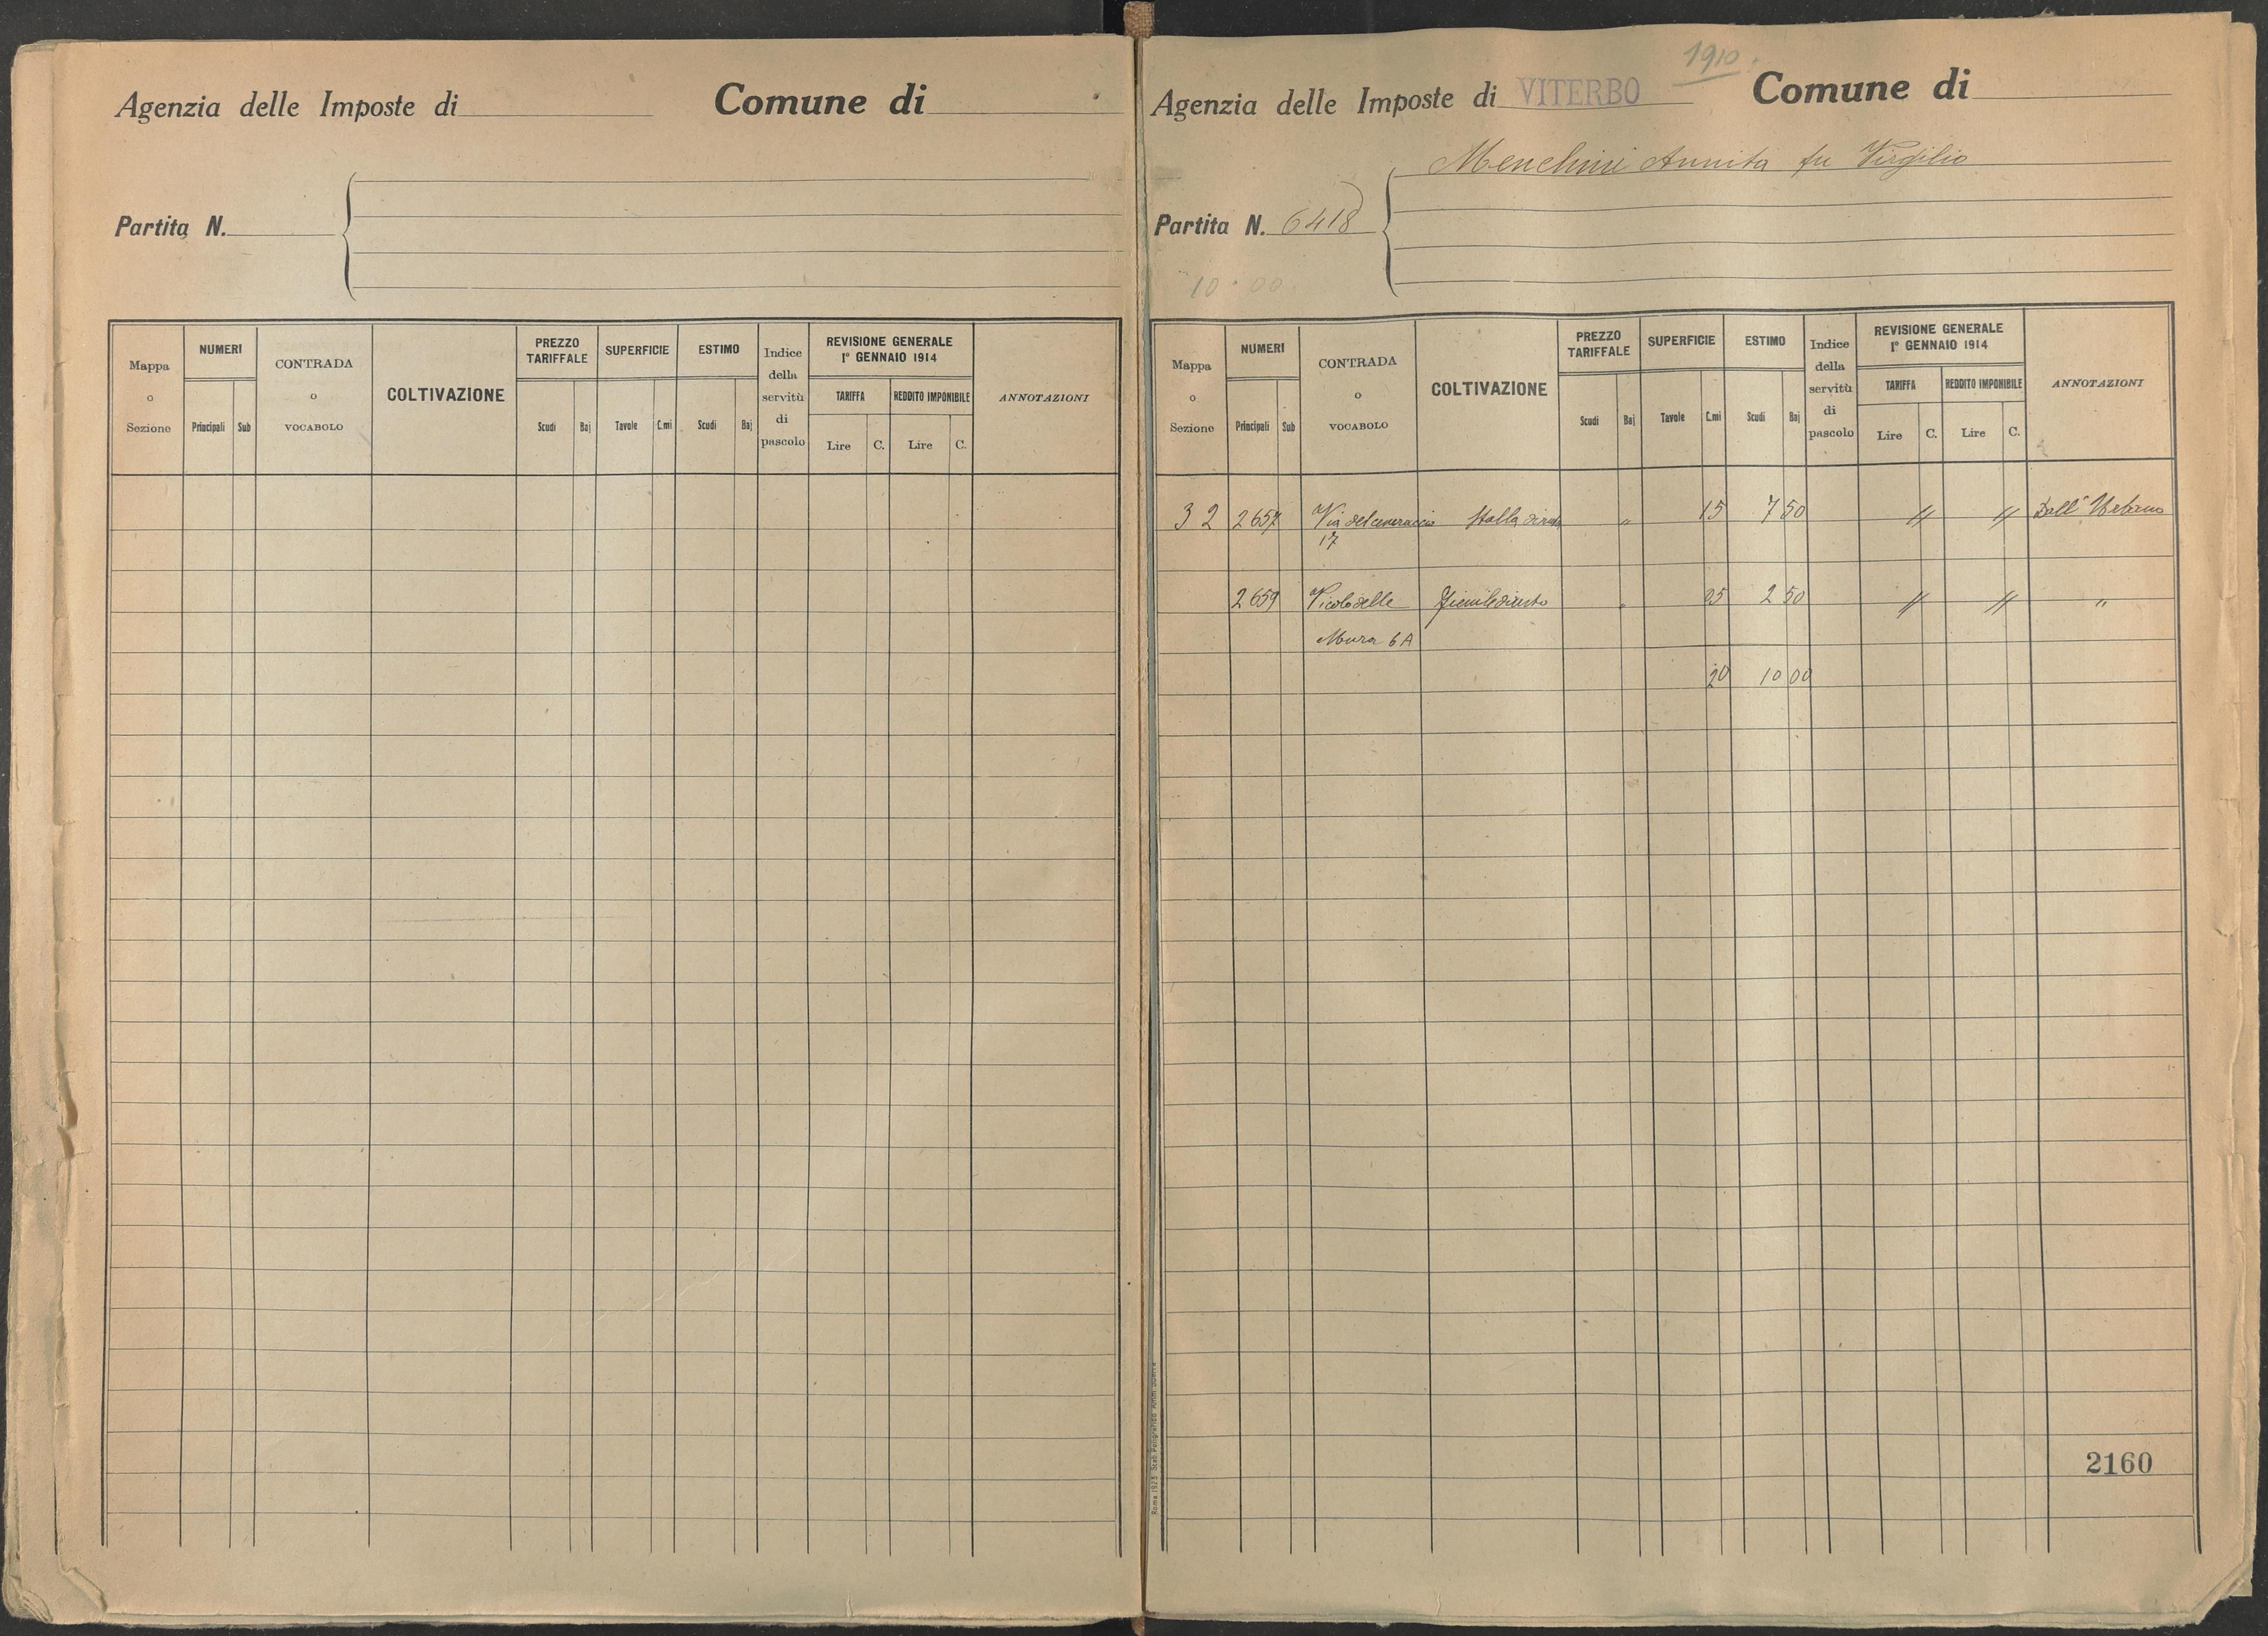 Agenzia delle Imposte di Comune di
Partita N.
Mappa o Sezione NUMERI Principali Sub CONTRADA o VOCABOLO COLTIVAZIONE PREZZO TARIFFALE Scudi Baj SUPERFICIE Tavole C.mi ESTIMO Scudi Baj Indice della servitù di pascolo REVISIONE GENERALE 1º GENNAIO 1914 TARIFFA Lire C. REDDITO IMPONIBILE Lire C. ANNOTAZIONI
1910.
Agenzia delle Imposte di VITERBO Comune di
Menchini Annita fu Virgilio
Partita N. 6418
10.00
Mappa o Sezione NUMERI Principali Sub CONTRADA o VOCABOLO COLTIVAZIONE PREZZO TARIFFALE Scudi Baj SUPERFICIE Tavole C.mi ESTIMO Scudi Baj Indice della servitù di pascolo REVISIONE GENERALE 1º GENNAIO 1914 TARIFFA Lire C. REDDITO IMPONIBILE Lire C. ANNOTAZIONI
32 2657 Via del Stalla " 15 7 50 // // Dall' Urbano
17
2659 Vicolo delle " 2 50 // // "
Mura 6A
20 10 00
2160
Roma 1923 Stab. Poligrafico Amm. Guerra